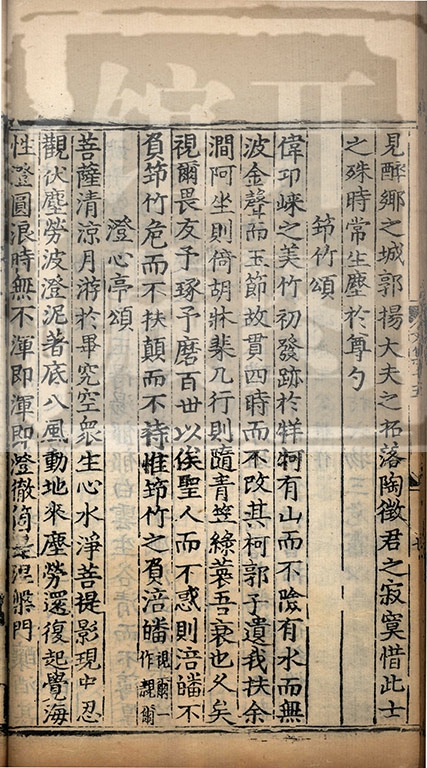 見醉鄉之城郭揚大夫之柘落陶徵君之寂寞惜此士
之殊時常生塵於尊勺
筇竹頌
偉邛崍之美竹初發跡於牂牁有山而不險有水而無
波金聲而玉節故貫四時而不改其柯郭子遺我扶余
澗阿坐則倚胡牀棐几行則隨青笠綠蓑吾衰也久矣
視爾畏友予琢予磨百世以俟聖人而不惑則涪皤不
負筇竹危而不扶顛而不持惟筇竹之負涪皤視爾一作爾
澄心亭頌
菩薩清涼月游於畢究空衆生心水淨菩提影現中忍
觀伏塵勞波澄泥著底八風動地來塵勞還復起覺海
性澄圓浪時無不渾即渾即澄徹箇是涅槃門